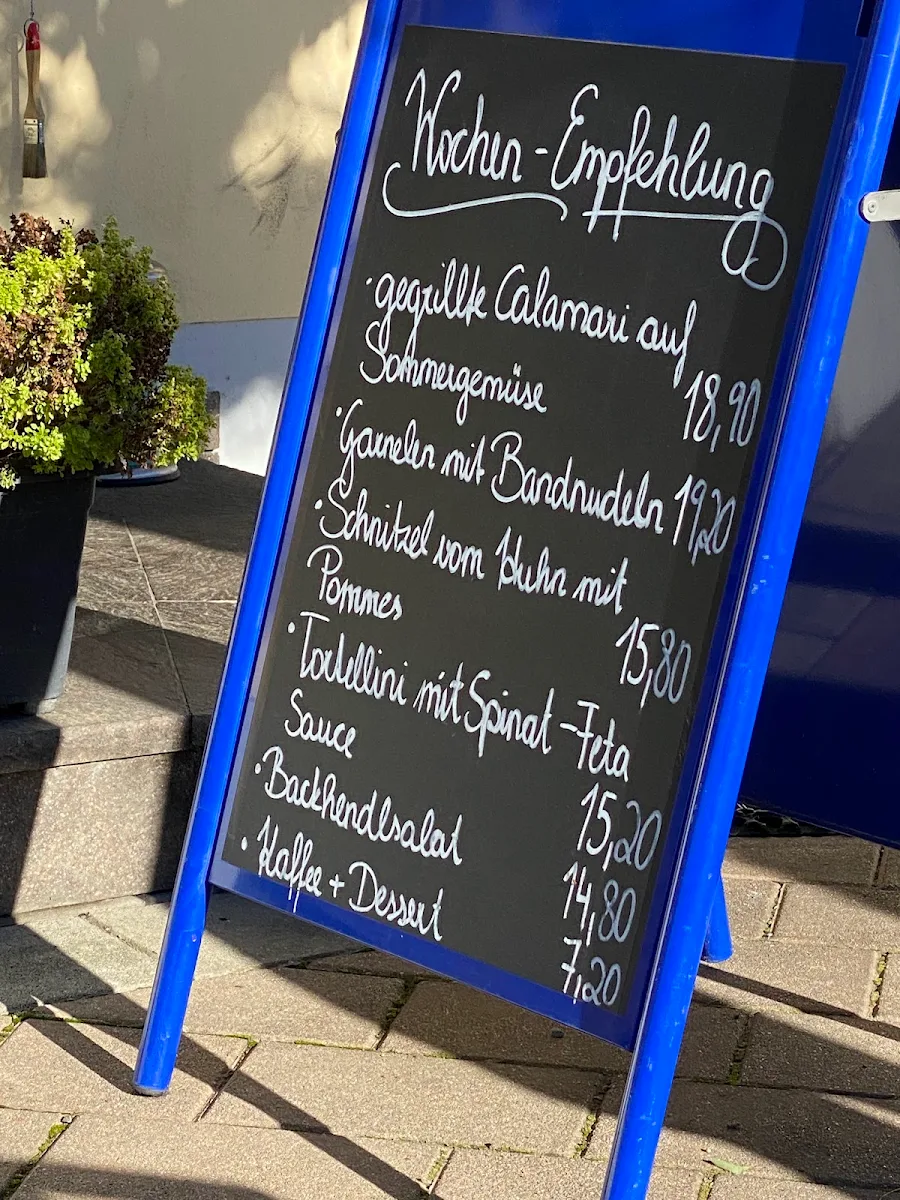 Wochen-Empfehlung
· gegrillte Calamari auf
Sommergemüse 18,90
· Garnelen mit Bandnudeln 19,20
· Schnitzel vom Huhn mit
Pommes 15,80
· Tortellini mit Spinat-Feta
Sauce 15,20
· Backhendlsalat 14,80
· Kaffee + Dessert 7,20